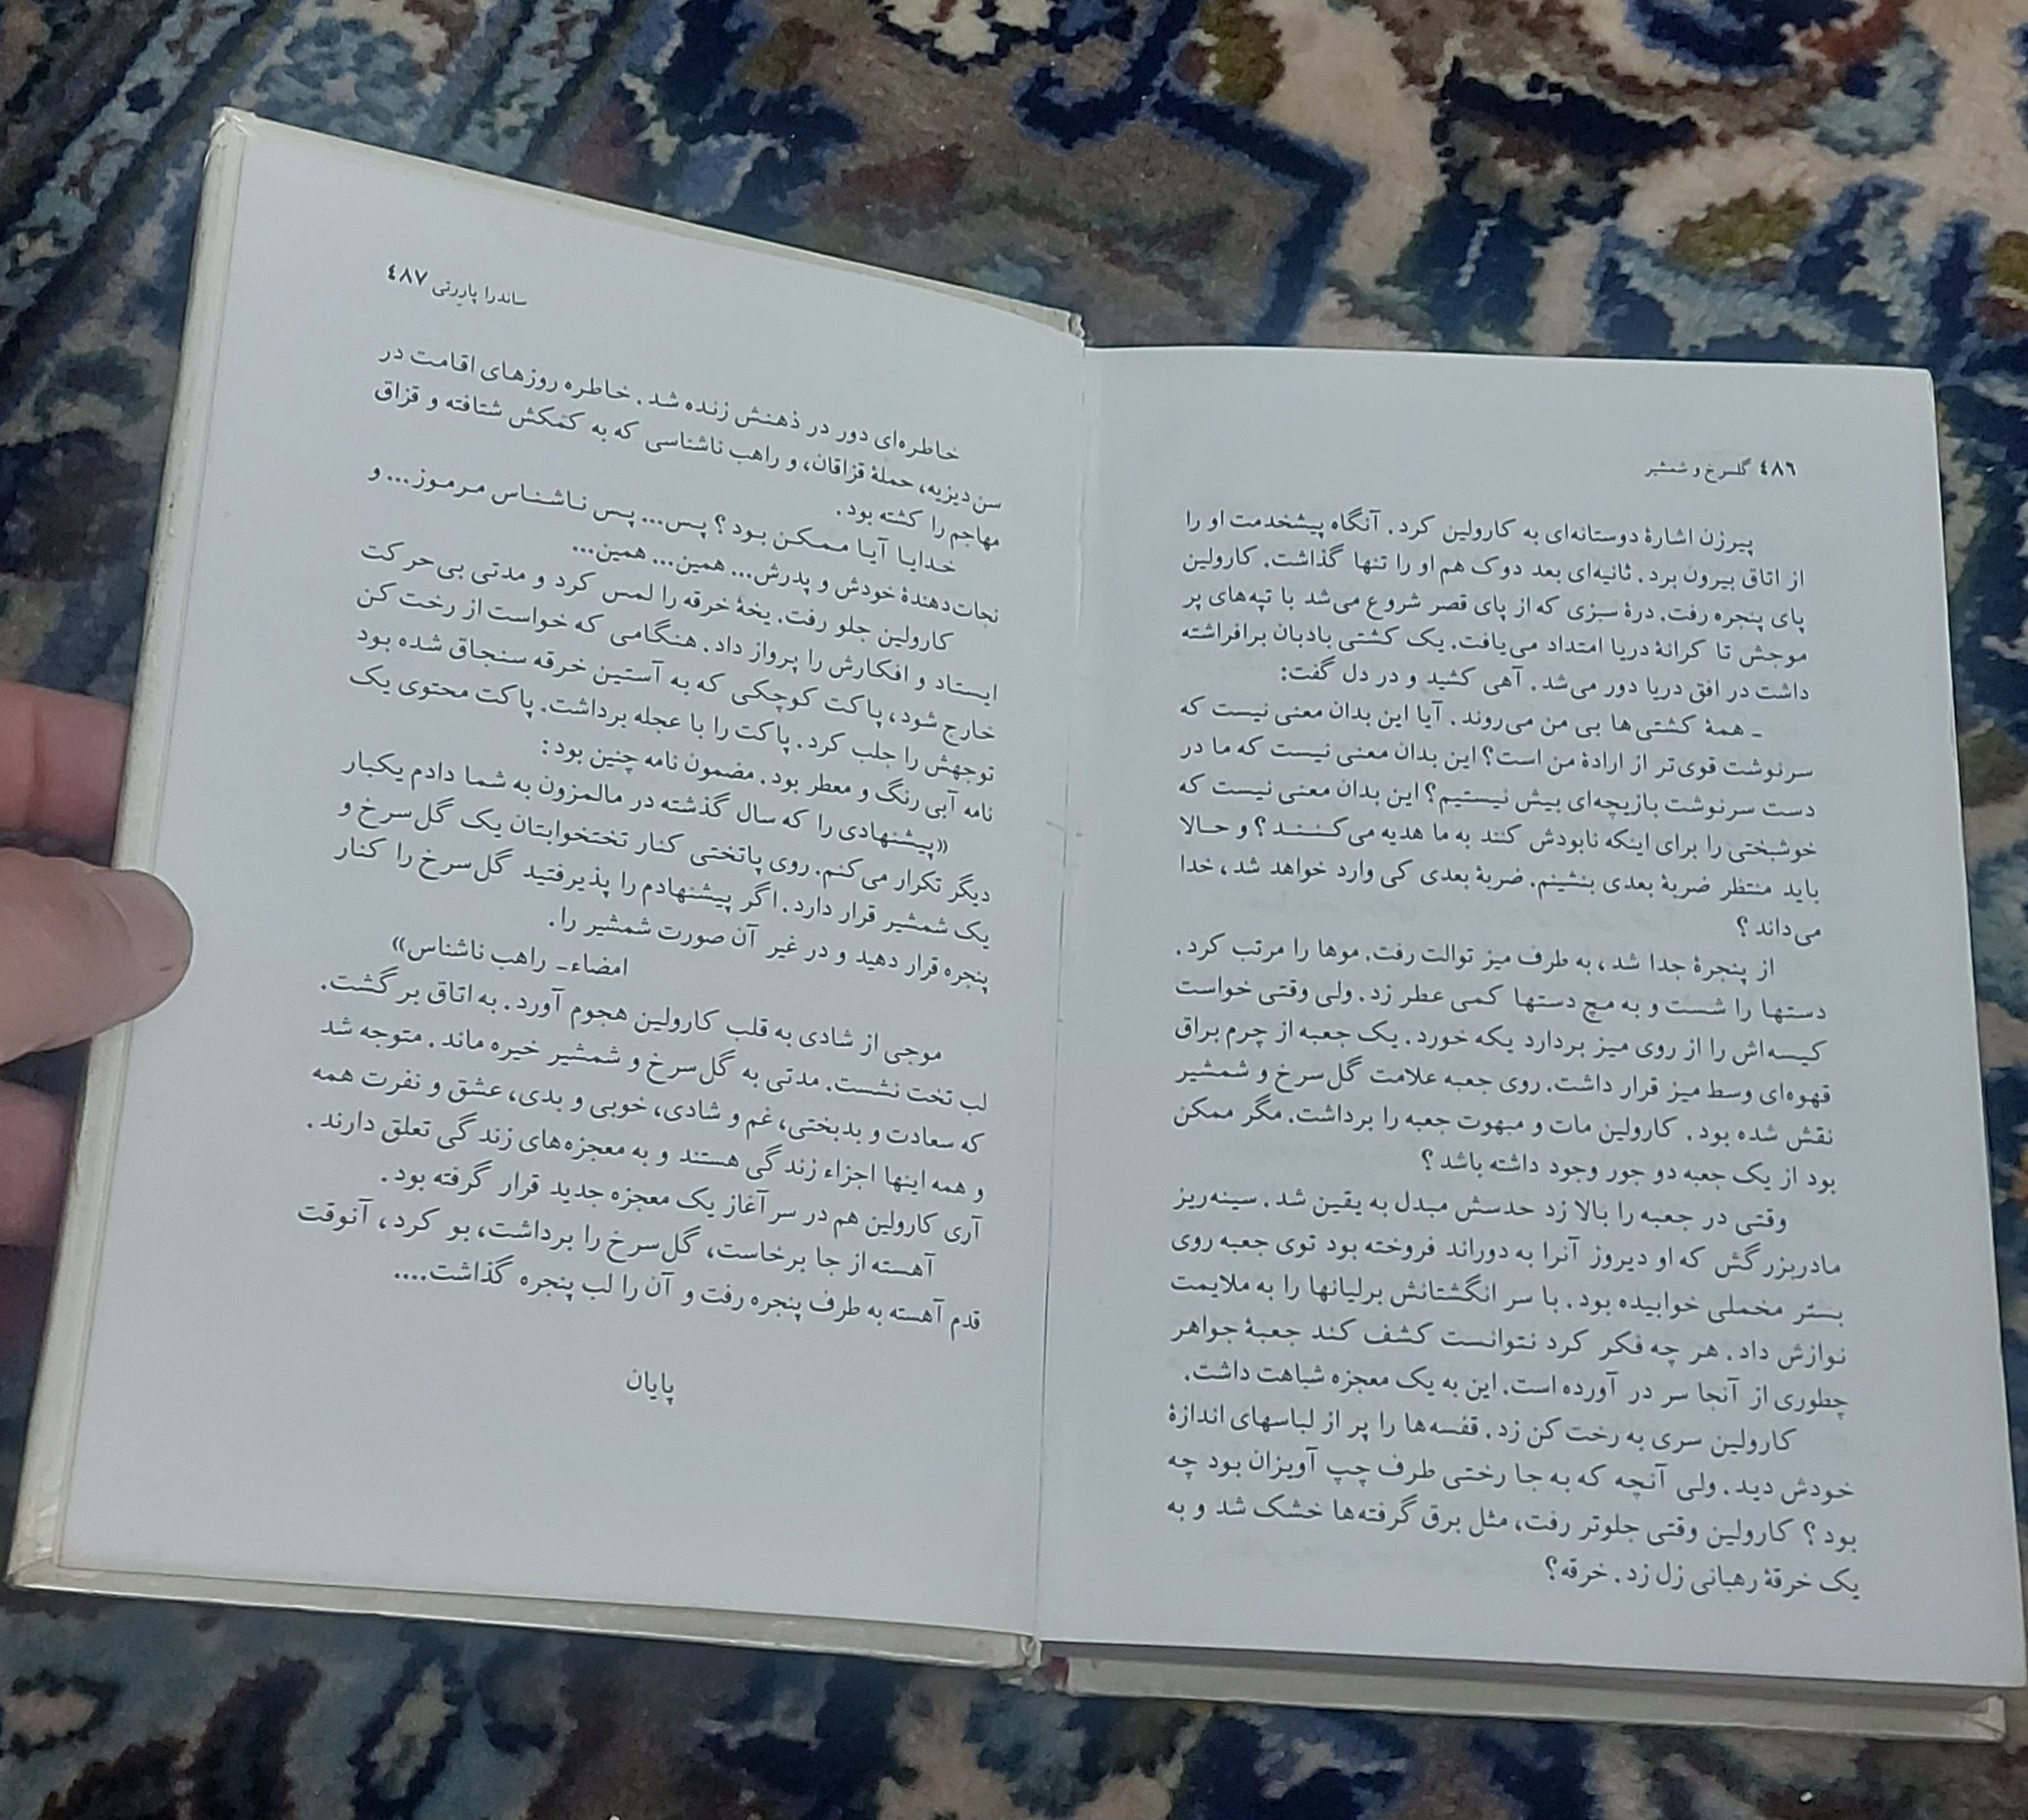 ٤٨٦ گلسرخ و شمشیر
پیرزن اشارهٔ دوستانه‌ای به کارولین کرد. آنگاه پیشخدمت او را
از اتاق بیرون برد. ثانیه‌ای بعد دوک هم او را تنها گذاشت. کارولین
پای پنجره رفت. درهٔ سبزی که از پای قصر شروع می‌شد با تپه‌های پر
موجش تا کرانهٔ دریا امتداد می‌یافت. یک کشتی بادبان برافراشته
داشت در افق دریا دور می‌شد. آهی کشید و در دل گفت:
ـ همهٔ کشتی‌ها بی من می‌روند. آیا این بدان معنی نیست که
سرنوشت قوی‌تر از ارادهٔ من است؟ این بدان معنی نیست که ما در
دست سرنوشت بازیچه‌ای بیش نیستیم؟ این بدان معنی نیست که
خوشبختی را برای اینکه نابودش کنند به ما هدیه می‌کنند؟ و حالا
باید منتظر ضربهٔ بعدی بنشینم. ضربهٔ بعدی کی وارد خواهد شد، خدا
می‌داند؟
از پنجرهٔ جدا شد، به طرف میز توالت رفت. موها را مرتب کرد.
دستها را شست و به مچ دستها کمی عطر زد. ولی وقتی خواست
کیسه‌اش را از روی میز بردارد یکه خورد. یک جعبه از چرم براق
قهوه‌ای وسط میز قرار داشت. روی جعبه علامت گل‌سرخ و شمشیر
نقش شده بود. کارولین مات و مبهوت جعبه را برداشت. مگر ممکن
بود از یک جعبه دو جور وجود داشته باشد؟
وقتی در جعبه را بالا زد حدسش مبدل به یقین شد. سینه‌ریز
مادربزرگش که او دیروز آنرا به دوراند فروخته بود توی جعبه روی
بستر مخملی خوابیده بود. با سر انگشتانش برلیانها را به ملایمت
نوازش داد. هر چه فکر کرد نتوانست کشف کند جعبهٔ جواهر
چطوری از آنجا سر در آورده است. این به یک معجزه شباهت داشت.
کارولین سری به رخت کن زد. قفسه‌ها را پر از لباسهای اندازهٔ
خودش دید. ولی آنچه که به جا رختی طرف چپ آویزان بود چه
بود؟ کارولین وقتی جلوتر رفت، مثل برق گرفته‌ها خشک شد و به
یک خرقهٔ رهبانی زل زد. خرقه؟
ساندرا پارِرتی ٤٨٧
خاطره‌ای دور در ذهنش زنده شد. خاطره روزهای اقامت در
سن‌دیزیه، حملهٔ قزاقان، و راهب ناشناسی که به کمکش شتافته و قزاق
مهاجم را کشته بود.
خدایا آیا ممکن بود؟ پس... پس ناشناس مرموز... و
نجات‌دهندهٔ خودش و پدرش... همین... همین...
کارولین جلو رفت. یخهٔ خرقه را لمس کرد و مدتی بی‌حرکت
ایستاد و افکارش را پرواز داد. هنگامی که خواست از رخت کن
خارج شود، پاکت کوچکی که به آستین خرقه سنجاق شده بود
توجهش را جلب کرد. پاکت را با عجله برداشت. پاکت محتوی یک
نامه آبی رنگ و معطر بود. مضمون نامه چنین بود:
«پیشنهادی را که سال گذشته در مالمزون به شما دادم یکبار
دیگر تکرار می‌کنم. روی پاتختی کنار تختخوابتان یک گل‌سرخ و
یک شمشیر قرار دارد. اگر پیشنهادم را پذیرفتید گل‌سرخ را کنار
پنجره قرار دهید و در غیر آن صورت شمشیر را.
امضاء‌ـ راهب ناشناس»
موجی از شادی به قلب کارولین هجوم آورد. به اتاق برگشت.
لب تخت نشست. مدتی به گل‌سرخ و شمشیر خیره ماند. متوجه شد
که سعادت و بدبختی، غم و شادی، خوبی و بدی، عشق و نفرت همه
و همه اینها اجزاء زندگی هستند و به معجزه‌های زندگی تعلق دارند.
آری کارولین هم در سرآغاز یک معجزه جدید قرار گرفته بود.
آهسته از جا برخاست، گل‌سرخ را برداشت، بو کرد، آنوقت
قدم آهسته به طرف پنجره رفت و آن را لب پنجره گذاشت....
پایان